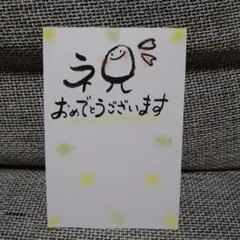 祝
おめでとうございます